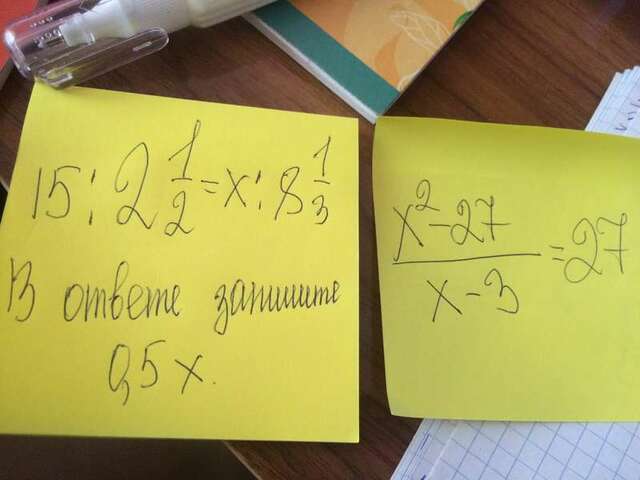 15 : 2 1/2 = x : 8 1/3
В ответе запишите
0,5 x.
x² - 27
x - 3
= 27